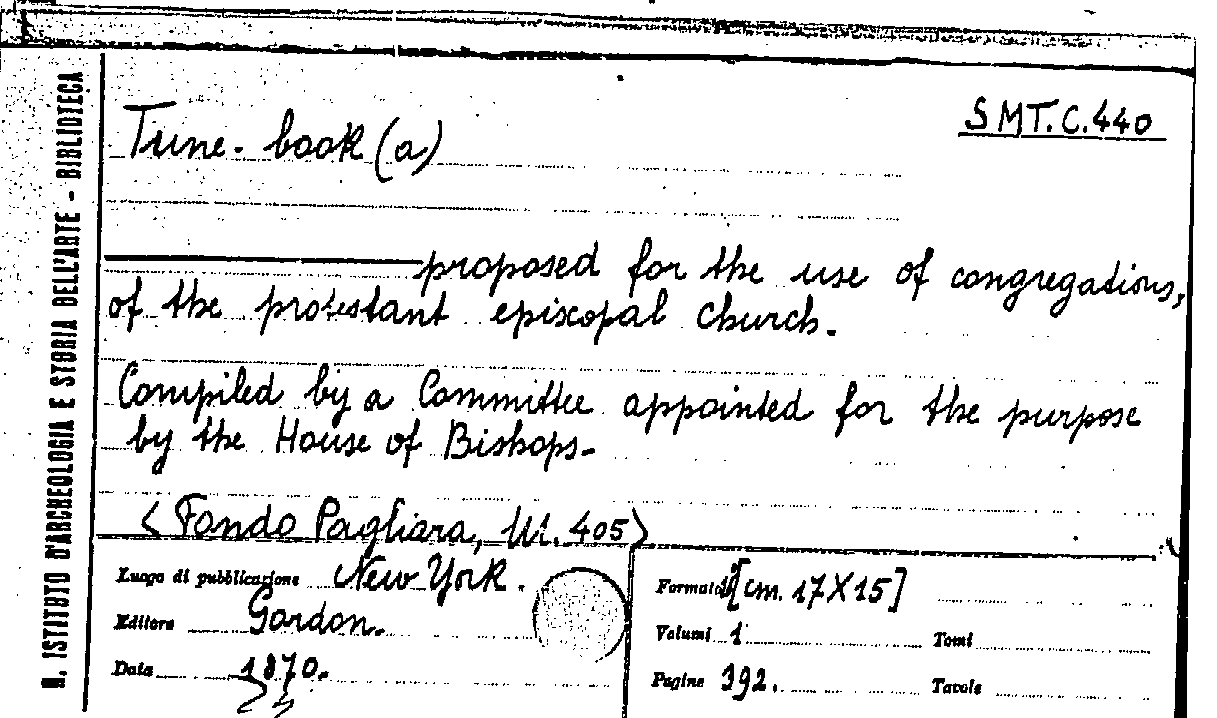 R. ISTITUTO D'ARCHEOLOGIA E STORIA DELL'ARTE - BIBLIOTECA
SMT.C.440
Tune-book (a)
proposed for the use of congregations,
of the protestant episcopal church.
Compiled by a Committee appointed for the purpose
by the House of Bishops-
<Fondo Pagliara, M. 405>
Luogo di pubblicazione New York.
Editore Gordon.
Data 1870.
Formato [cm. 17X15]
Volumi 1 Tomi
Pagine 392. Tavole